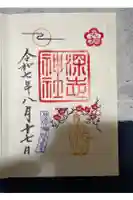 深志
神社
令和七年八月十七日